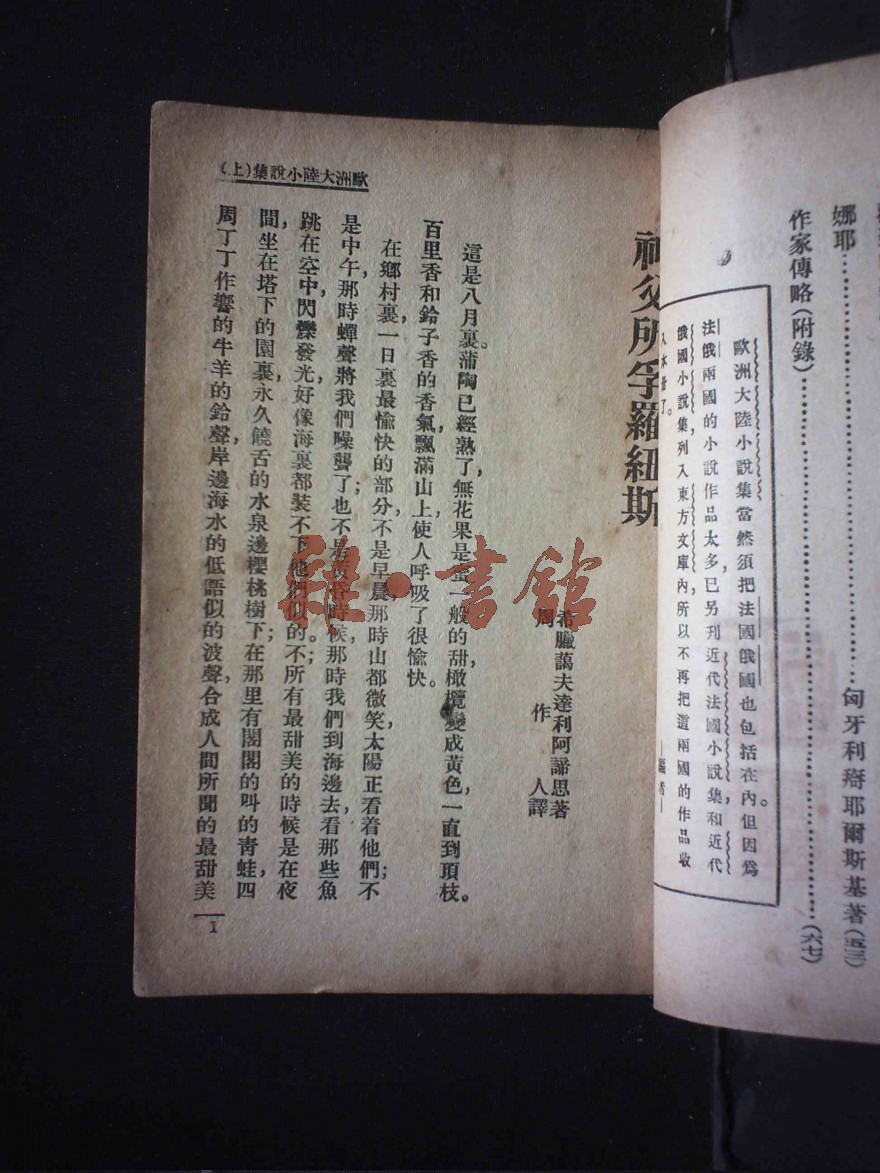 娜耶……………………匈牙利㾗耶爾斯基著(五三)
作家傳略(附錄)……………………(六七)
歐洲大陸小說集當然須把法國俄國也包括在內。但因爲
法俄兩國的小說作品太多,已另刊近代法國小說集和近代
俄國小說集,列入東方文庫內,所以不再把這兩國的作品收
入本書了。
—編者—
歐洲大陸小說集(上)
神父所孚羅紐斯
希臘藹夫達利阿諦思著
周作人譯
這是八月裏。蒲陶已經熟了,無花果是蜜一般的甜,橄欖變成黃色,一直到頂枝。
百里香和鈴子香的香氣,飄滿山上,使人呼吸了很愉快。
在鄉村裏,一日裏最愉快的部分,不是早晨,那時山都微笑,太陽正看着他們;不
是中午,那時蟬聲將我們噪聾了;也不是黃昏時候,那時我們到海邊去看那些魚,
跳在空中,閃爍發光,好像海裏都裝不下他們似的。不;所有最甜美的時候是在夜
間,坐在塔下的園裏,永久饒舌的水泉邊,櫻桃樹下;在那里有閣閣的叫的靑蛙,四
周丁丁作響的牛羊的鈴聲,岸邊海水的低語似的波聲,合成人間所聞的最甜美
1
雜·書館